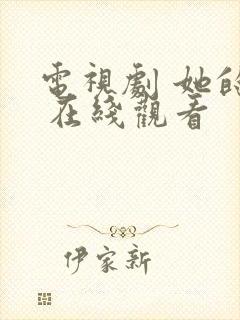 電視劇 她的
在綫觀看
伊家新